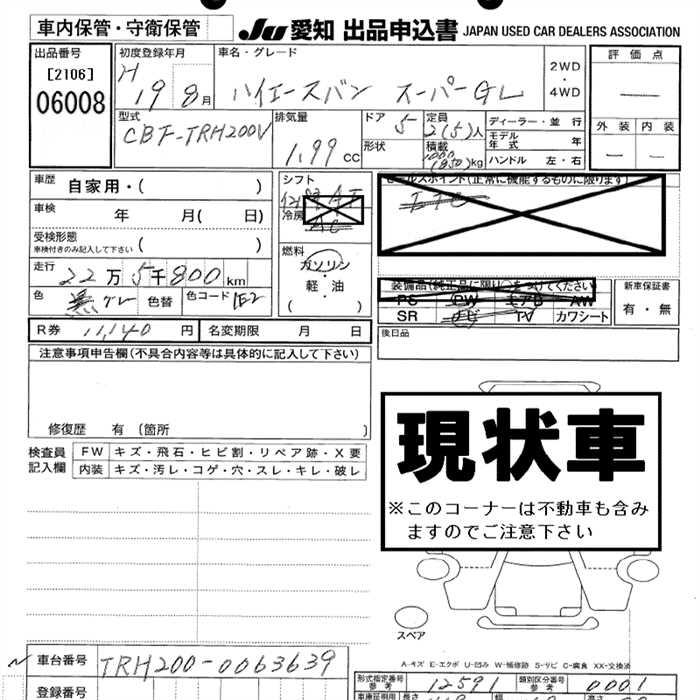 車内保管・守衛保管
JU 愛知 出品申込書 JAPAN USED CAR DEALERS ASSOCIATION
出品番号
[2106]
06008
初度登録年月
H 19 8月
車名・グレード
ハイエースバン スーパーGL
2WD
・
4WD
評価点
—
外装 内装
— —
型式
CBF-TRH200V
排気量
1.99 cc
ドア
5
形状
定員
2(5)人
積載
1000
(850)kg
ディーラー・並行
モデル年式 年
ハンドル 左・右
車歴 自家用・( )
車検 年 月( 日)
受検形態
車検付きのみ記入して下さい ( )
走行 22万5千800km
色 グレー 色替 色コード 1E2
シフト
AT
冷房
AC
燃料
ガソリン
・
軽・油
( )
セールスポイント(正常に機能するものに限ります)
ETC
装備品(純正品に限り○をつけてください)
PS PW エアB AW
SR ナビ TV カワシート
新車保証書
有・無
R券 11,140 円 名変期限 月 日
後日品
注意事項申告欄(不具合内容等は具体的に記入して下さい)
修復歴 有 (箇所 )
検査員
記入欄
FW キズ・飛石・ヒビ割・リペア跡・X要
内装 キズ・汚レ・コゲ・穴・スレ・キレ・破レ
現状車
※このコーナーは不動車も含み
ますのでご注意下さい
スペア
A-キズ E-エクボ U-凹み W-補修跡 S-サビ C-腐食 XX-交換済
車台番号 TRH200-0063639
登録番号
形式指定番号
参考 12591
類別区分番号
参考 0001
車庫証明用
参考
長さ